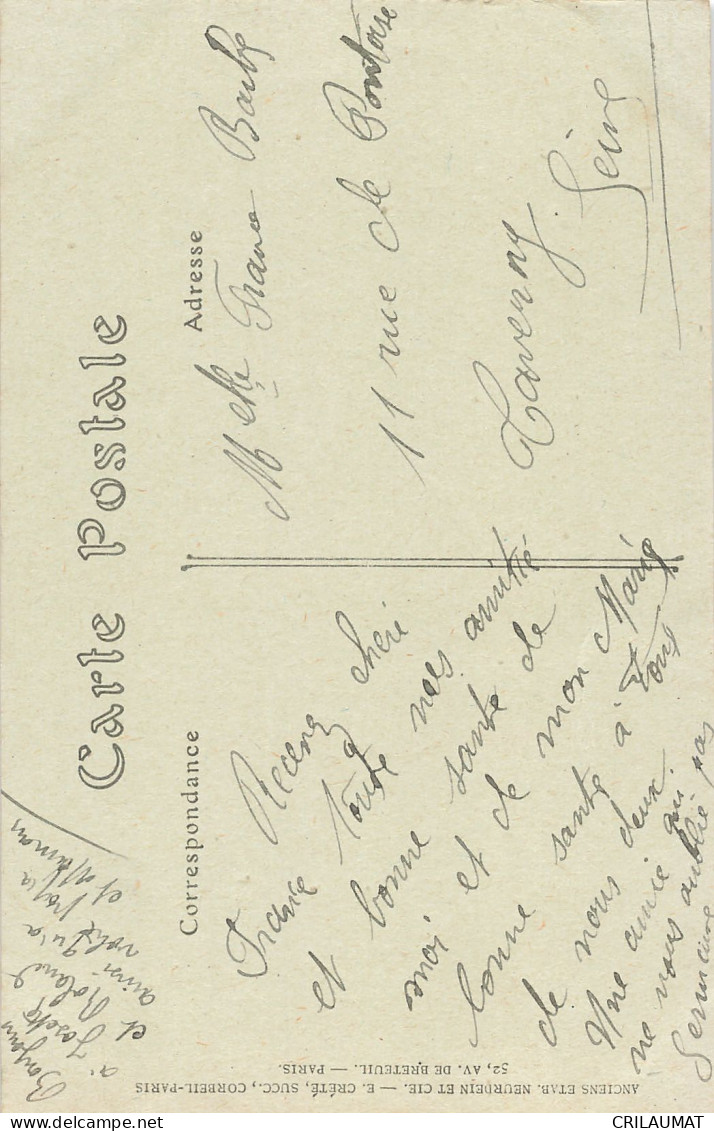 Carte Postale
Correspondance
Adresse
Recevez chère
France toute nos amitié
et bonne santé de
moi et de mon Marie
bonne santé à tous
de nous deux.
Une amie qui
ne vous oublie pas
Germaine
Bonjour
à Josette
et Roland
ainsi qu'a
votre Papa
et Maman
Melle France Barbe
11 rue de Pontoise
Taverny
Seine
ANCIENS ETAB. NEURDEIN ET CIE. — E. CRÉTÉ, SUCC., CORBEIL-PARIS
52, AV. DE BRETEUIL. — PARIS.
CRILAUMAT